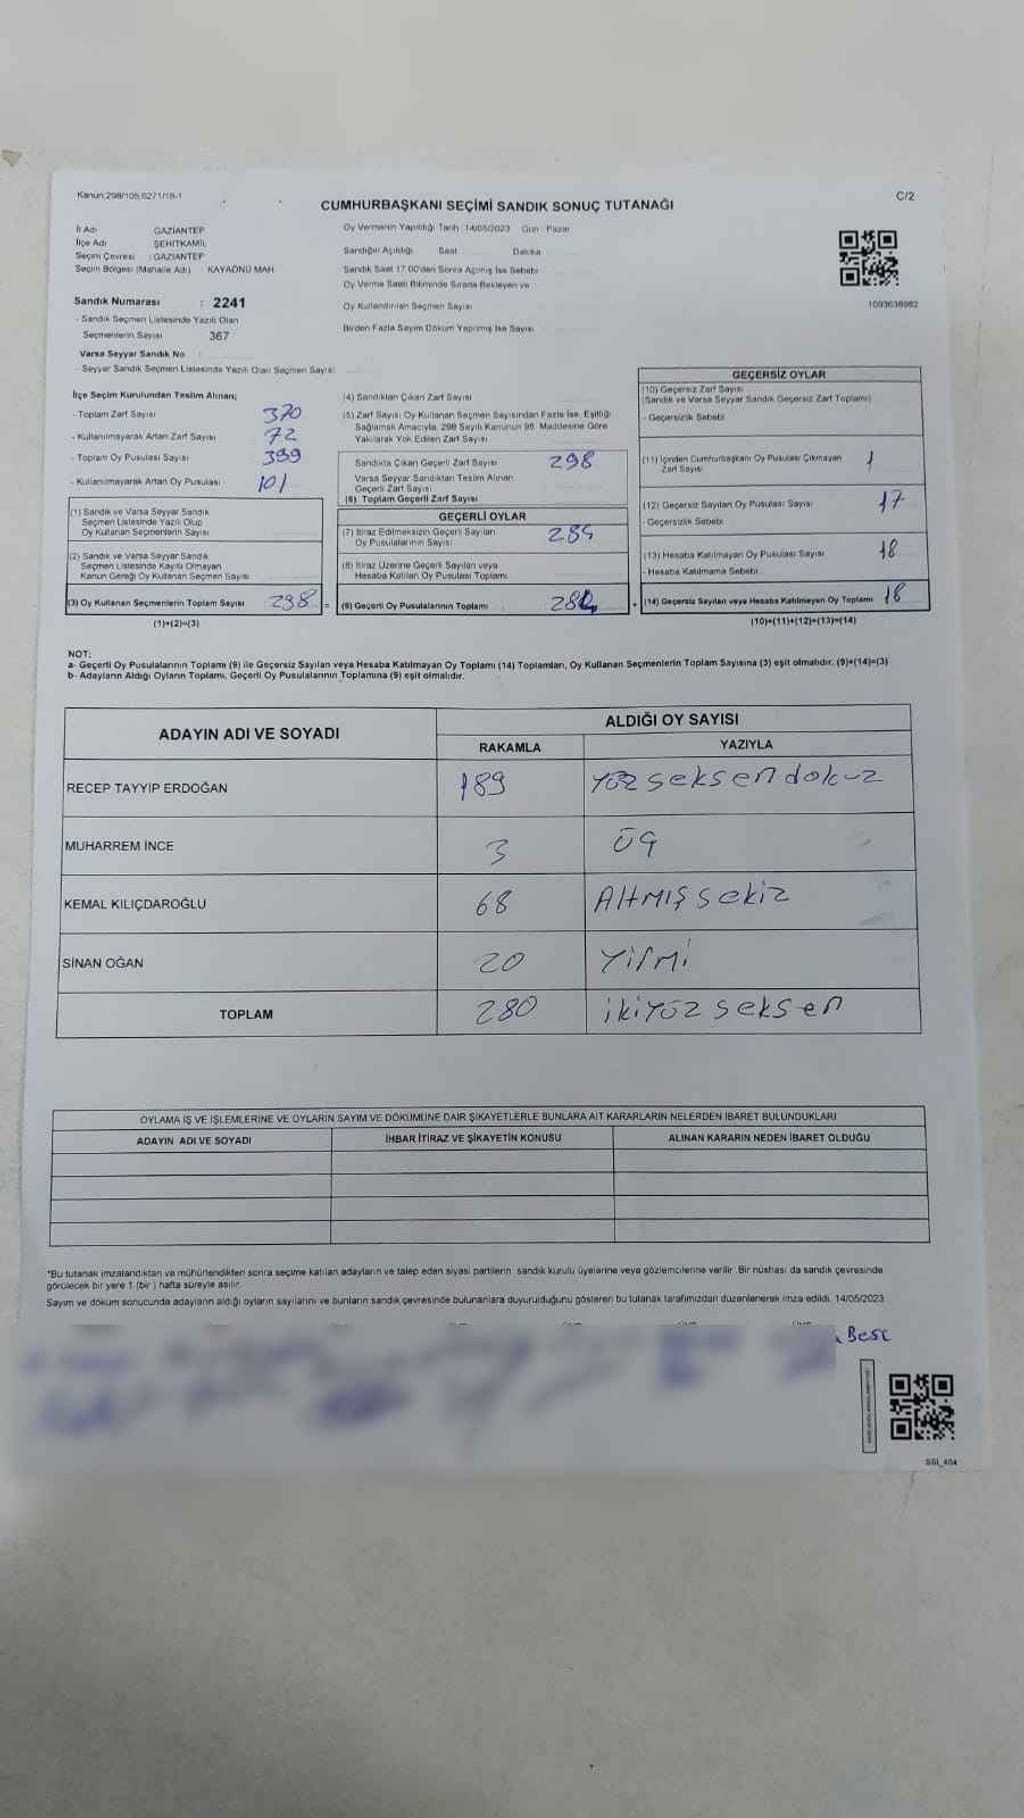 Kanun:298/105,6271/19-1
C/2
CUMHURBAŞKANI SEÇİMİ SANDIK SONUÇ TUTANAĞI
İl Adı GAZİANTEP
İlçe Adı ŞEHİTKAMİL
Seçim Çevresi : GAZİANTEP
Seçim Bölgesi (Mahalle Adı) : KAYAÖNÜ MAH.
Sandık Numarası : 2241
- Sandık Seçmen Listesinde Yazılı Olan
Seçmenlerin Sayısı 367
Varsa Seyyar Sandık No
- Seyyar Sandık Seçmen Listesinde Yazılı Olan Seçmen Sayısı
Oy Vermenin Yapıldığı Tarih 14/05/2023 Gün : Pazar
Sandığın Açıldığı Saat Dakika
Sandık Saat 17.00'den Sonra Açılmış İse Sebebi
Oy Verme Saati Bitiminde Sırada Bekleyen ve
Oy Kullandırılan Seçmen Sayısı
Birden Fazla Sayım Döküm Yapılmış İse Sayısı
1093638982
İlçe Seçim Kurulundan Teslim Alınan;
- Toplam Zarf Sayısı 370
- Kullanılmayarak Artan Zarf Sayısı 72
- Toplam Oy Pusulası Sayısı 399
- Kullanılmayarak Artan Oy Pusulası 101
(1) Sandık ve Varsa Seyyar Sandık
Seçmen Listesinde Yazılı Olup
Oy Kullanan Seçmenlerin Sayısı
(2) Sandık ve Varsa Seyyar Sandık
Seçmen Listesinde Kayıtlı Olmayan
Kanun Gereği Oy Kullanan Seçmen Sayısı
(3) Oy Kullanan Seçmenlerin Toplam Sayısı 298 =
(1)+(2)=(3)
(4) Sandıktan Çıkan Zarf Sayısı
(5) Zarf Sayısı Oy Kullanan Seçmen Sayısından Fazla İse, Eşitliği
Sağlamak Amacıyla, 298 Sayılı Kanunun 98. Maddesine Göre
Yakılarak Yok Edilen Zarf Sayısı
Sandıkta Çıkan Geçerli Zarf Sayısı 298
Varsa Seyyar Sandıktan Teslim Alınan
Geçerli Zarf Sayısı
(6) Toplam Geçerli Zarf Sayısı
GEÇERLİ OYLAR
(7) İtiraz Edilmeksizin Geçerli Sayılan
Oy Pusulalarının Sayısı
(8) İtiraz Üzerine Geçerli Sayılan veya
Hesaba Katılan Oy Pusulası Toplamı
(9) Geçerli Oy Pusulalarının Toplamı +
GEÇERSİZ OYLAR
(10) Geçersiz Zarf Sayısı
(Sandık ve Varsa Seyyar Sandık Geçersiz Zarf Toplamı)
- Geçersizlik Sebebi
(11) İçinden Cumhurbaşkanı Oy Pusulası Çıkmayan
Zarf Sayısı 1
(12) Geçersiz Sayılan Oy Pusulası Sayısı 17
- Geçersizlik Sebebi
(13) Hesaba Katılmayan Oy Pusulası Sayısı 18
- Hesaba Katılmama Sebebi
(14) Geçersiz Sayılan veya Hesaba Katılmayan Oy Toplamı 18
(10)+(11)+(12)+(13)=(14)
NOT:
a- Geçerli Oy Pusulalarının Toplamı (9) ile Geçersiz Sayılan veya Hesaba Katılmayan Oy Toplamı (14) Toplamları, Oy Kullanan Seçmenlerin Toplam Sayısına (3) eşit olmalıdır. (9)+(14)=(3)
b- Adayların Aldığı Oyların Toplamı, Geçerli Oy Pusulalarının Toplamına (9) eşit olmalıdır.
ADAYIN ADI VE SOYADI
ALDIĞI OY SAYISI
RAKAMLA YAZIYLA
RECEP TAYYİP ERDOĞAN 189 Yüz seksen dokuz
MUHARREM İNCE 3 üç
KEMAL KILIÇDAROĞLU 68 Altmış sekiz
SİNAN OĞAN 20 Yirmi
TOPLAM 280 ikiyüz seksen
OYLAMA İŞ VE İŞLEMLERİNE VE OYLARIN SAYIM VE DÖKÜMÜNE DAİR ŞİKAYETLERLE BUNLARA AİT KARARLARIN NELERDEN İBARET BULUNDUKLARI
ADAYIN ADI VE SOYADI İHBAR İTİRAZ VE ŞİKAYETİN KONUSU ALINAN KARARIN NEDEN İBARET OLDUĞU
*Bu tutanak imzalandıktan ve mühürlendikten sonra seçime katılan adayların ve talep eden siyasi partilerin sandık kurulu üyelerine veya gözlemcilerine verilir. Bir nüshası da sandık çevresinde
görülecek bir yere 1 (bir) hafta süreyle asılır.
Sayım ve döküm sonucunda adayların aldığı oyların sayılarını ve bunların sandık çevresinde bulunanlara duyurulduğunu gösteren bu tutanak tarafımızdan düzenlenerek imza edildi. 14/05/2023